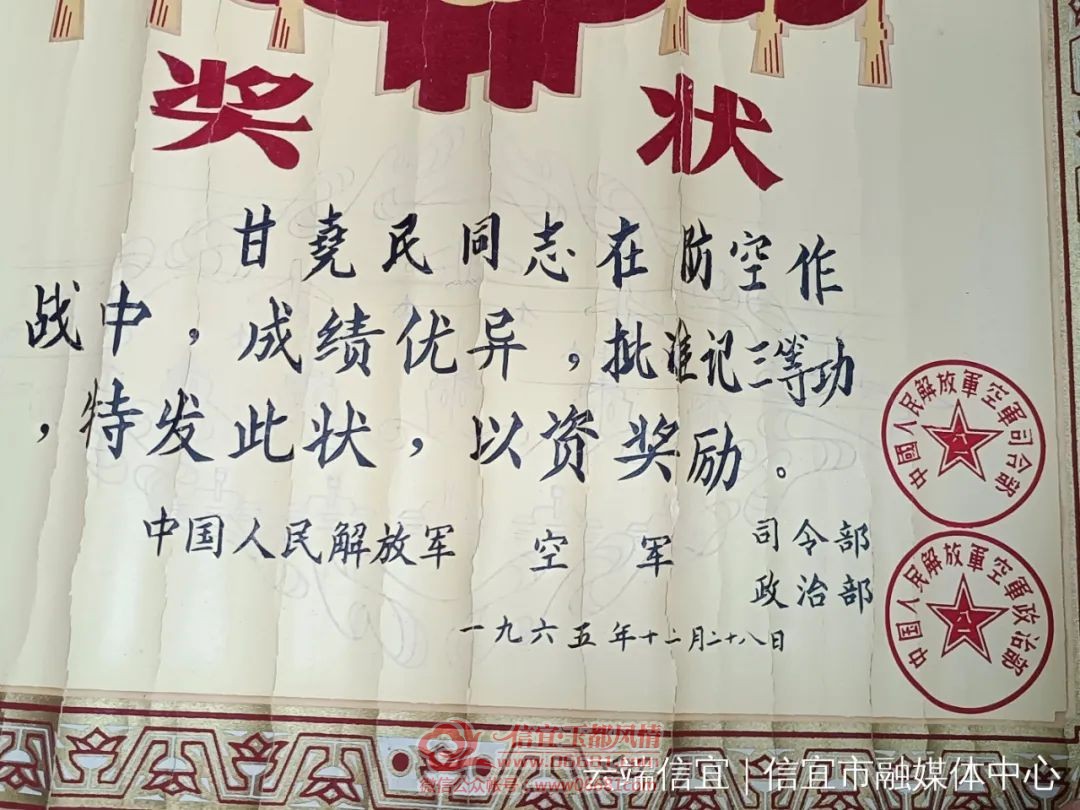 奖状
甘堯民同志在防空作
战中，成绩优异，批准记三等功
，特发此状，以资奖励。
中国人民解放军 空军 司令部
政治部
一九六五年十二月二十八日
中國人民解放軍空軍司令部
中国人民解放軍空軍政治部
信宜玉都风情
云端信宜 | 信宜市融媒体中心